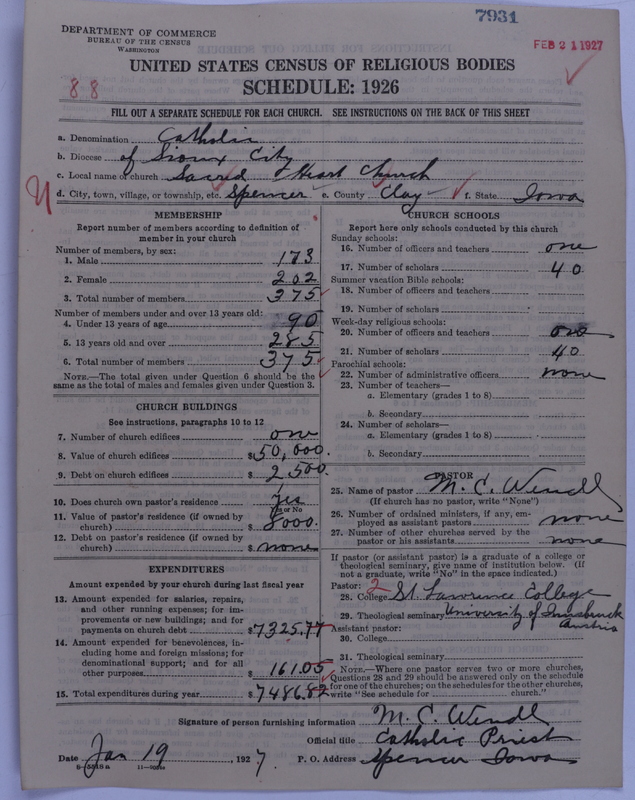 7931
DEPARTMENT OF COMMERCE
BUREAU OF THE CENSUS
WASHINGTON
FEB 21 1927
UNITED STATES CENSUS OF RELIGIOUS BODIES
SCHEDULE: 1926
88
FILL OUT A SEPARATE SCHEDULE FOR EACH CHURCH. SEE INSTRUCTIONS ON THE BACK OF THIS SHEET
a. Denomination Catholic
b. Diocese of Sioux City
c. Local name of church Sacred Heart Church
d. City, town, village, or township, etc. Spencer e. County Clay f. State Iowa
MEMBERSHIP
Report number of members according to definition of
member in your church
Number of members, by sex:
1. Male 173
2. Female 202
3. Total number of members 375
Number of members under and over 13 years old:
4. Under 13 years of age 90
5. 13 years old and over 285
6. Total number of members 375
NOTE.—The total given under Question 6 should be the
same as the total of males and females given under Question 3.
CHURCH BUILDINGS
See instructions, paragraphs 10 to 12
7. Number of church edifices one
8. Value of church edifices $50,000.
9. Debt on church edifices $2,500.
10. Does church own pastor's residence Yes
Yes or No
11. Value of pastor's residence (if owned by
church) $8000.
12. Debt on pastor's residence (if owned by
church) $none
EXPENDITURES
Amount expended by your church during last fiscal year
13. Amount expended for salaries, repairs,
and other running expenses; for im-
provements or new buildings; and for
payments on church debt $7325.77
14. Amount expended for benevolences, in-
cluding home and foreign missions; for
denominational support; and for all
other purposes $161.05
15. Total expenditures during year $7486.82
CHURCH SCHOOLS
Report here only schools conducted by this church
Sunday schools:
16. Number of officers and teachers one
17. Number of scholars 40
Summer vacation Bible schools:
18. Number of officers and teachers
19. Number of scholars
Week-day religious schools:
20. Number of officers and teachers one
21. Number of scholars 40
Parochial schools:
22. Number of administrative officers none
23. Number of teachers—
a. Elementary (grades 1 to 8)
b. Secondary
24. Number of scholars—
a. Elementary (grades 1 to 8)
b. Secondary
PASTOR
25. Name of pastor M. C. Wendl
(If church has no pastor, write "None")
26. Number of ordained ministers, if any, em-
ployed as assistant pastors none
27. Number of other churches served by the
pastor or his assistants none
If pastor (or assistant pastor) is a graduate of a college or
theological seminary, give name of institution below. (If
not a graduate, write "No" in the space indicated.)
Pastor: 2
28. College St. Lawrence College
29. Theological seminary University of Innsbruck
Austria
Assistant pastor:
30. College
31. Theological seminary
NOTE.—Where one pastor serves two or more churches,
Questions 28 and 29 should be answered only on the schedule
for one of the churches; on the schedules for the other churches,
write "See schedule for church."
Signature of person furnishing information M. C. Wendl
Official title Catholic Priest
Date Jan 19, 1927 P. O. Address Spencer Iowa